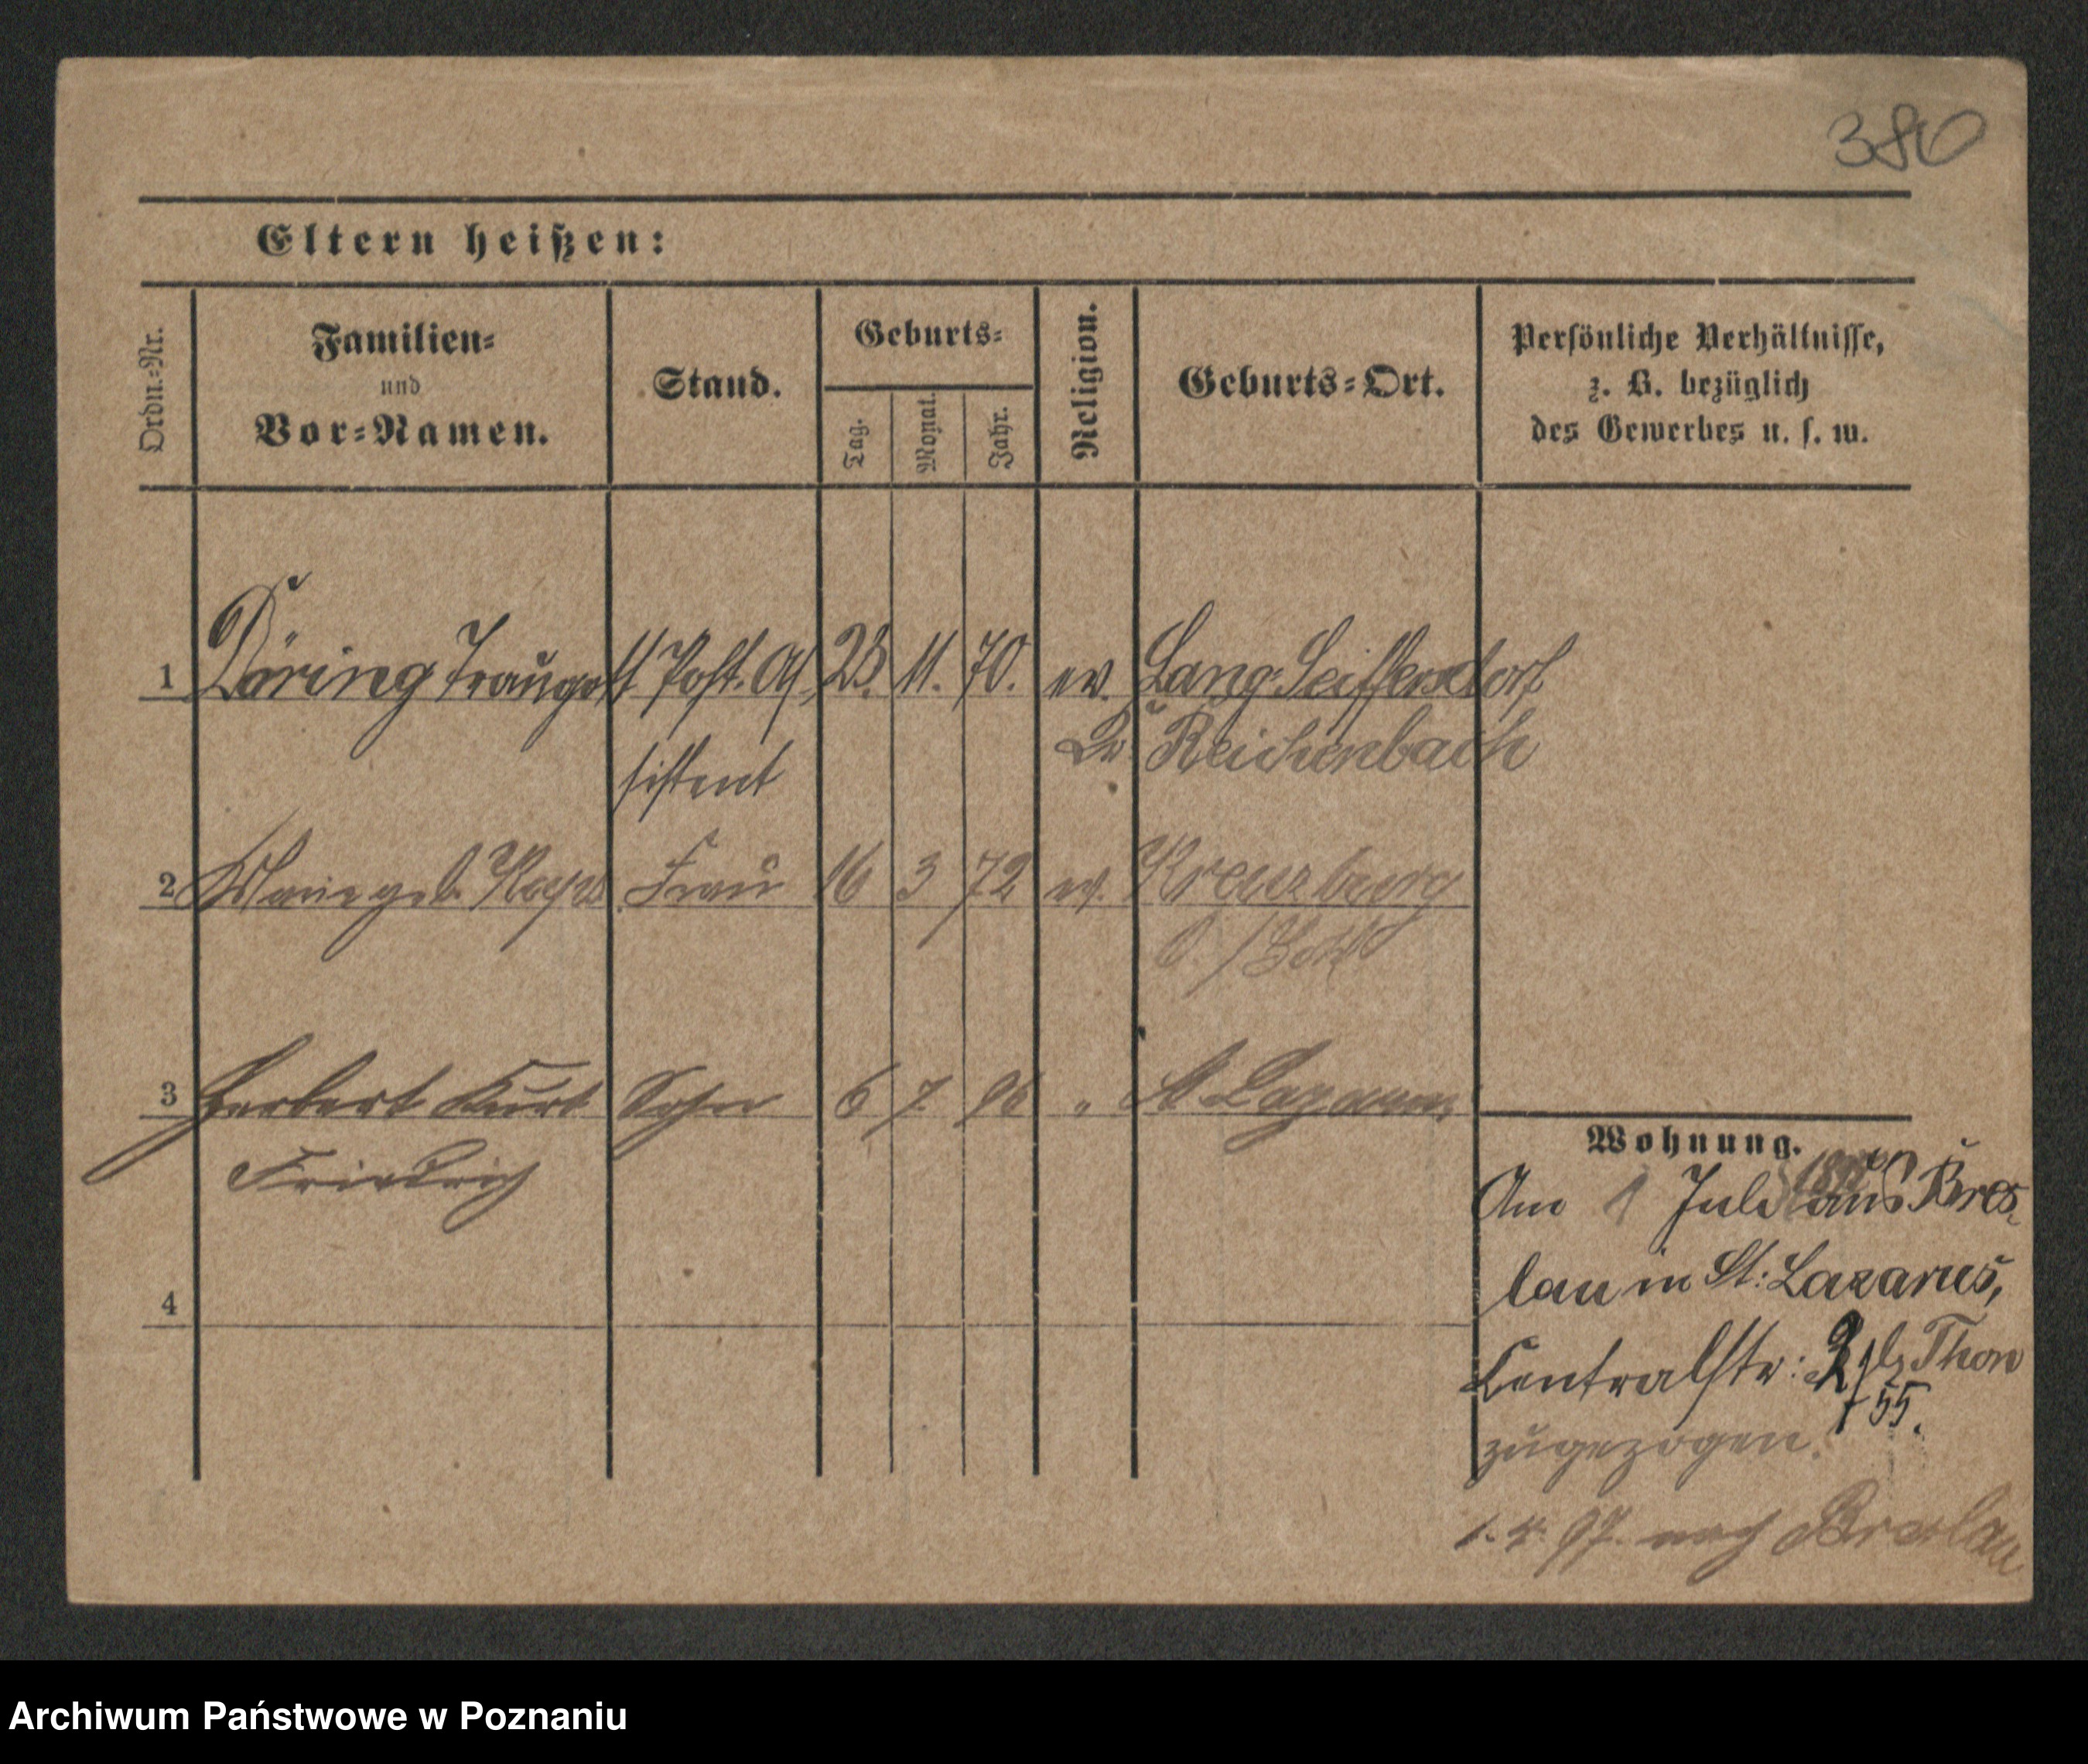 380
Eltern heißen:
Ordn.-Nr.
Familien-
und
Vor-Namen.
Stand.
Geburts-
Tag.
Monat.
Jahr.
Religion.
Geburts-Ort.
Persönliche Verhältnisse,
z. B. bezüglich
des Gewerbes u. s. w.
1 Döring Traugott Post. As 28. 11. 70. ev. Lang. Seiffersdorf
sistent Kr Reichenbach
2 Marie geb. Frau 16 3 72 ev. Kreuzburg
O./Schl
3 Herbert Kurt Sohn 6 7. 96 " St Lazarus
Friedrich
4
Wohnung.
Am 1 Juli aus Bres-
lau in St: Lazarus,
Centralstr: 2 Thon
55.
zugezogen.
1. 4. 97. nach Breslau
Archiwum Państwowe w Poznaniu